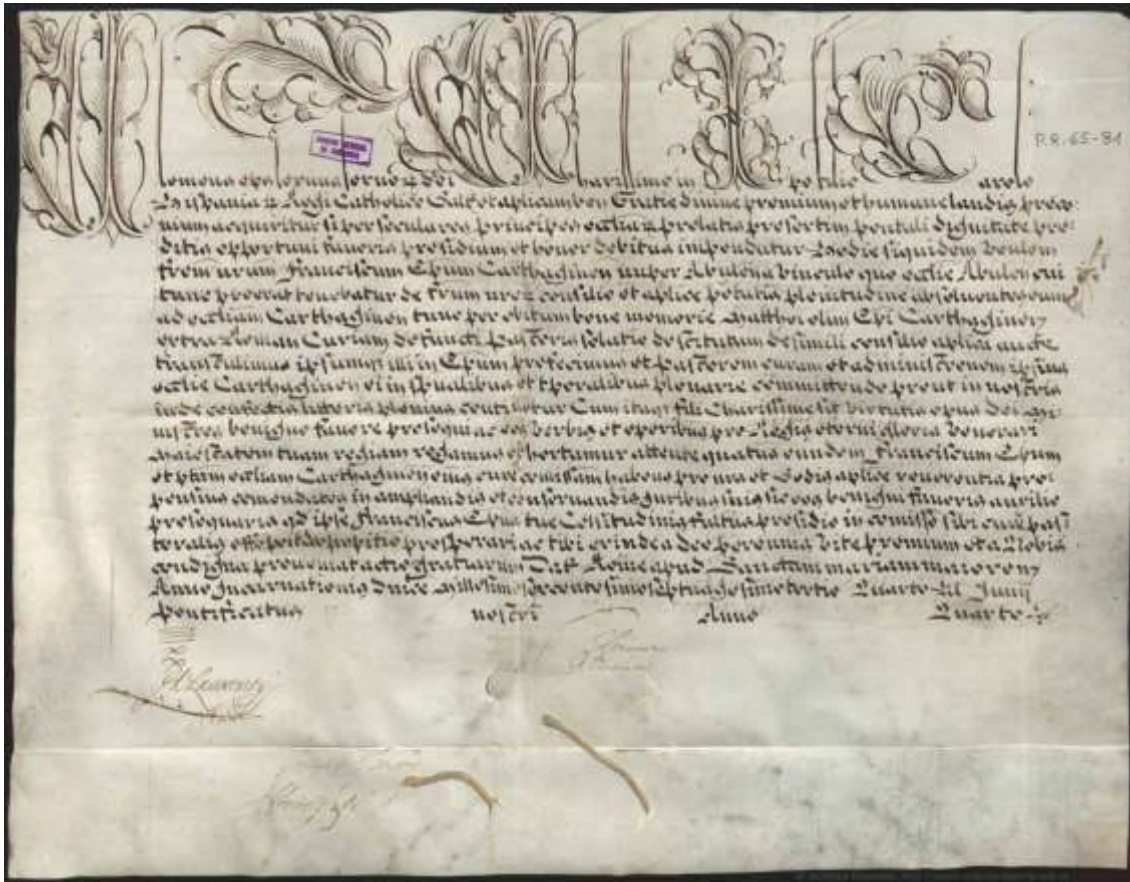 P.R. 65-81
Clemens eps servus servoz dei Charissimo in
Hispaniaz Regi Catholico Salt et aplicam ben Gratie divine premium et humane laudis preco
nium acquiritur si per seculares principes ecclia prelatis presertim pontali dignitate pre
ditis opportuni favoris presidium et honor debitus impendatur Hodie siquidem
frem nrum Franciscum Epum Carthaginen nuper Abulen a vinculo quo ecclie Abulen cui
tunc preerat tenebatur de frum nroz consilio et aplice ptatis plenitudine absolventes eum
ad eccliam Carthaginen tunc per obitum bone memorie Epi Carthaginen
extra Roman Curiam defuncti Pastoris solatio destitutam de simili consilio aplica aucte
transtulimus ipsumqz illi in Epum prefecimus et Pastorem curam et administronem ipsius
ecclie Carthaginen ei in spualibus et tporalibus plenarie committendo prout in nostris
inde confectis litteris plenius continetur Cum itaqz fili Charissime sit virtutis opus dei mi
nistros benigno favore prosequi ac eos verbis et operibus pro Regis eterni gloria venerari
Maiestatem tuam regiam rogamus et hortamur attente quatus eundem Franciscum Epum
et ptam eccliam Carthaginen sue cure comissam habens pro nra et Sedis aplice reverentia pro
pensius comendatos in ampliandis et conservandis juribus suis sic eos benigni favoris auxilio
prosequaris qd ipse Franciscus Epus tue Celsitudinis fultus presidio in comisso sibi cure pas
toralis offo possit deo propitio prosperari ac tibi exinde a deo perennis vite premium et a Nobis
condigna proveniat actio gratiarum Dat Rome apud Sanctam mariam maiorem
Anno Incarnationis Dnice Millesimo sexcentesimo septuagesimo tertio Quarto Kl Junij
Pontificatus nostri Anno Quarto